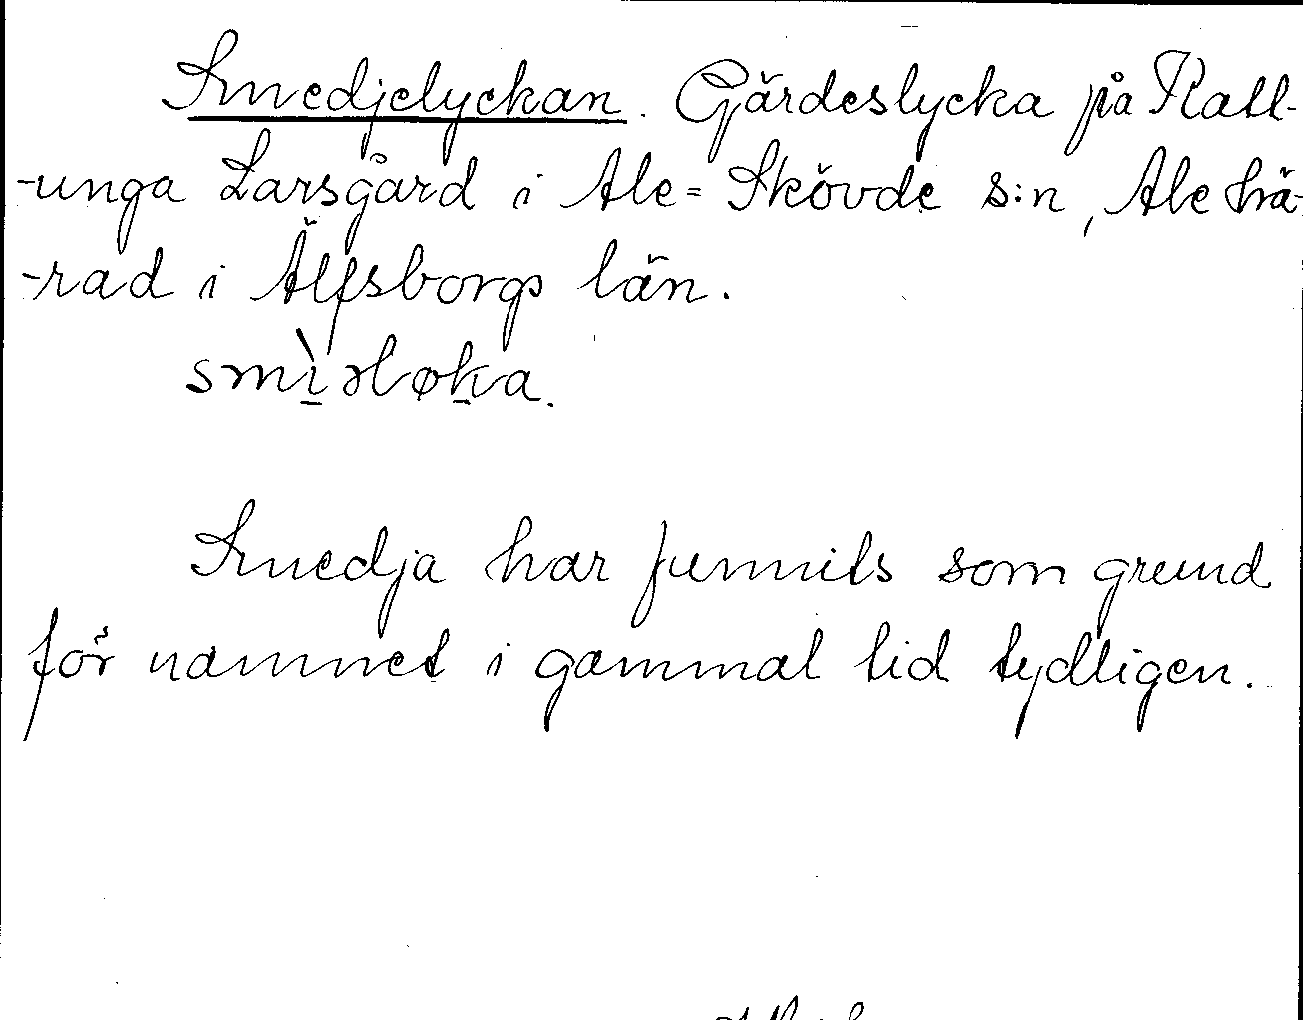 Smedjelyckan. Gärdeslycka på Rall-
-unga Larsgård i Ale=Skövde s:n, Ale hä-
-rad i Älfsborgs län.
smìəløka.

Smedja har funnits som grund
för namnet i gammal tid tydligen.